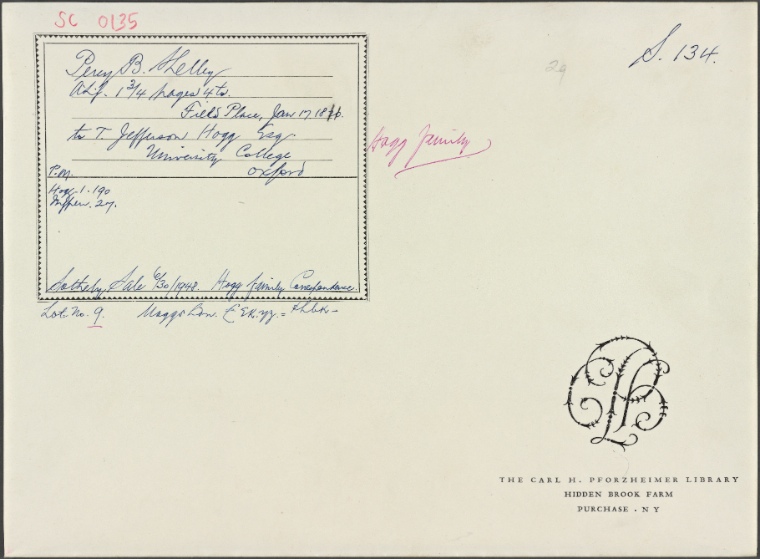 SC 0135
S. 134.
29
Percy B. Shelley
A.L.f. 1 3/4 pages 4to.
Field Place, Jan 17. 18
to T. Jefferson Hogg Esq.
University College
Oxford
P.M.
Hogg. 1. 190
27.
Hogg family
Sotheby Sale 6/30/1948. Hogg family Correspondence.
Lot. No. 9. Maggs
THE CARL H. PFORZHEIMER LIBRARY
HIDDEN BROOK FARM
PURCHASE . N Y